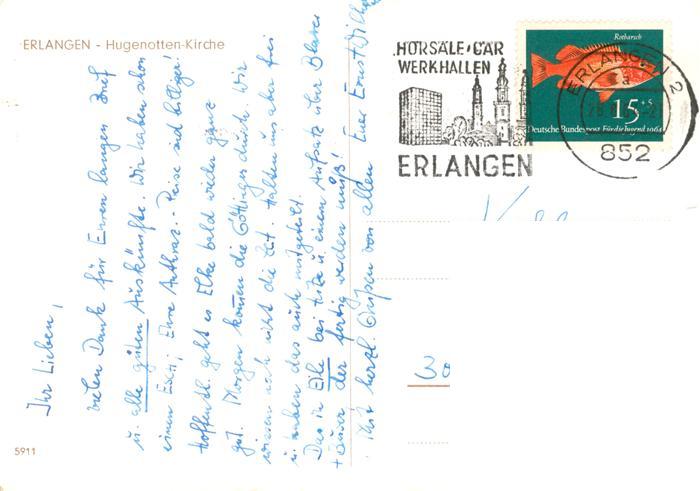 ERLANGEN - Hugenotten-Kirche
HÖRSÄLE, GÄR
WERKHALLEN
ERLANGEN
Rotbarsch
15+5
Deutsche Bundespost Für die Jugend 1964
ERLANGEN 2
a
852
Ihr Lieben,
vielen Dank für Euren langen Brief
u. alle guten Auskünfte. Wir haben schon
einen Esch; Eure Anthraz.-Preise sind billiger!
Hoffentl. geht es Elke bald wieder ganz
gut. Morgen kommen die Göttinger durch. Wir
wissen noch nicht die Zeit. Halten uns aber frei
u. haben das auch mitgeteilt.
Das in Eile bei Hitze u. einem Aufsatz über
der fertig werden muß!
Mit herzl. Grüßen von allen Euer Ernst Wilh
5911